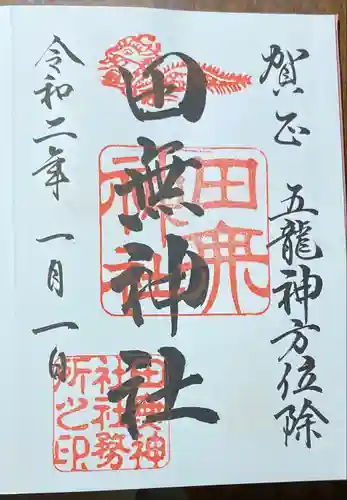 賀正 五龍神方位除
田無神社
令和二年 一月一日
田無神社
田無神社社務所之印